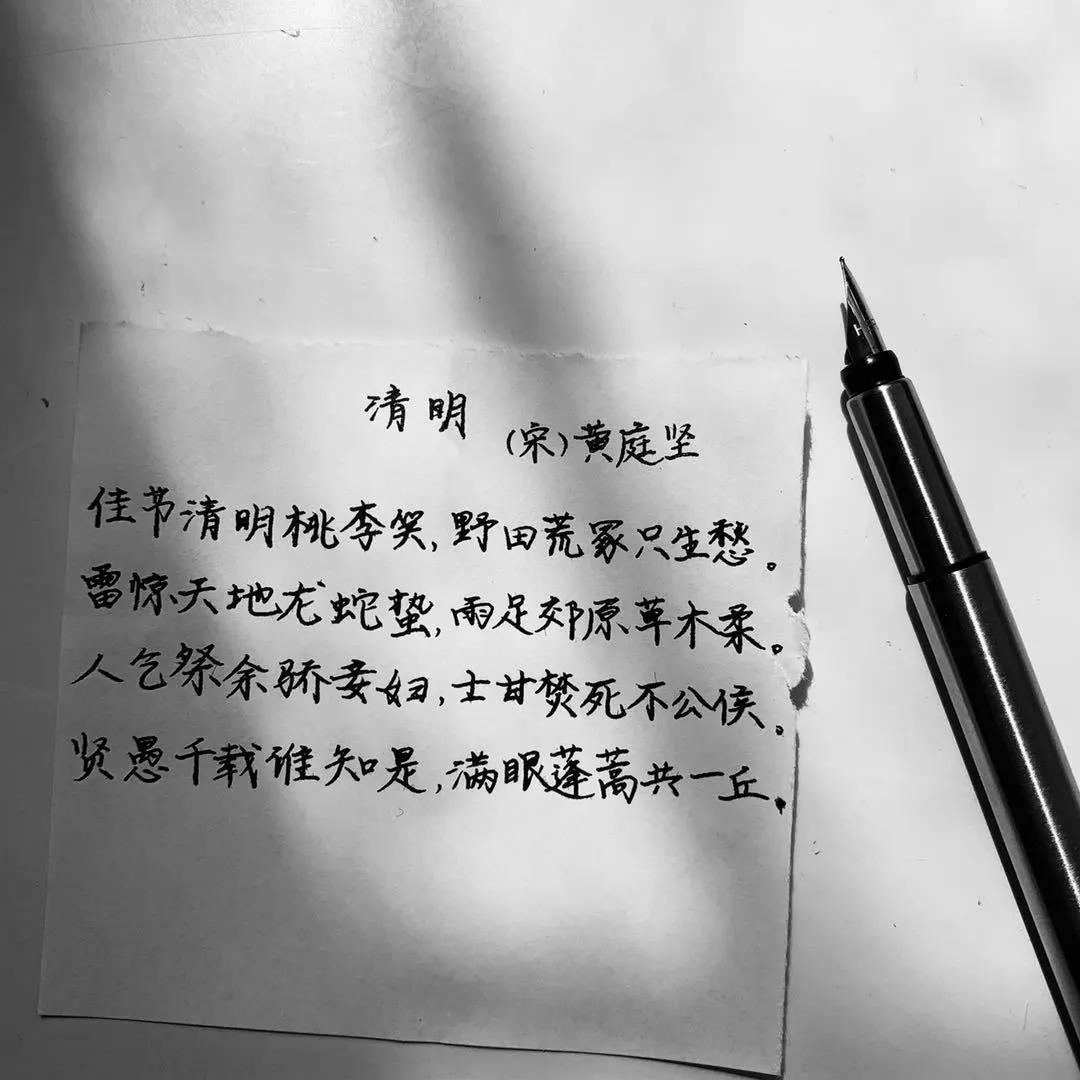 清明
(宋)黄庭坚
佳节清明桃李笑,野田荒冢只生愁。
雷惊天地龙蛇蛰,雨足郊原草木柔。
人乞祭余骄妾妇,士甘焚死不公侯。
贤愚千载谁知是,满眼蓬蒿共一丘.